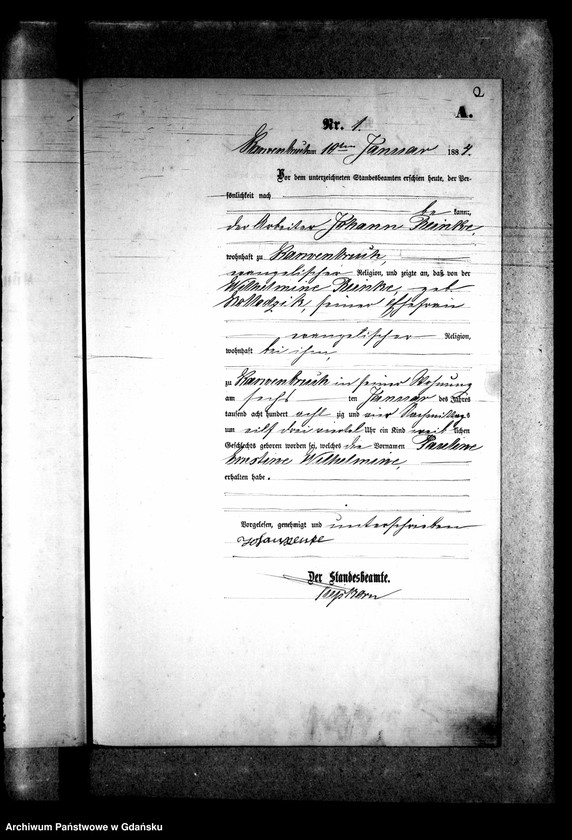 2
A.
Nr. 1.
am 10ten Januar 1884.
Vor dem unterzeichneten Standesbeamten erschien heute, der Per-
sönlichkeit nach
be kannt,
der Arbeiter Johann Reinke,
wohnhaft zu
evangelischer Religion, und zeigte an, daß von der
Wilhelmine Reinke, geb.
seiner Ehefrau
evangelischer Religion,
wohnhaft bei ihm,
zu in seiner Wohnung
am sechs ten Januar des Jahres
tausend acht hundert acht zig und vier Nachmittags
um elf drei viertel Uhr ein Kind weib lichen
Geschlechts geboren worden sei, welches die Vornamen Pauline
Ernstine Wilhelmine,
erhalten habe.
Vorgelesen, genehmigt und unterschrieben
Der Standesbeamte.
Archiwum Państwowe w Gdańsku